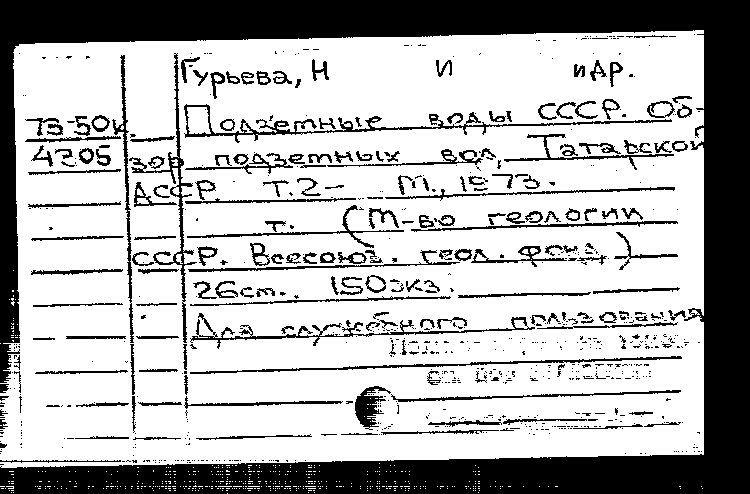 Гурьева, Н И и др.
73-50к. Подземные воды СССР. Об-
4205 зор подземных вод, Татарской
АССР. Т.2- М., 1973.
т. (М-во геологии
СССР. Всесоюз. геол. фонд)
26см. 150экз.
Для служебного пользования